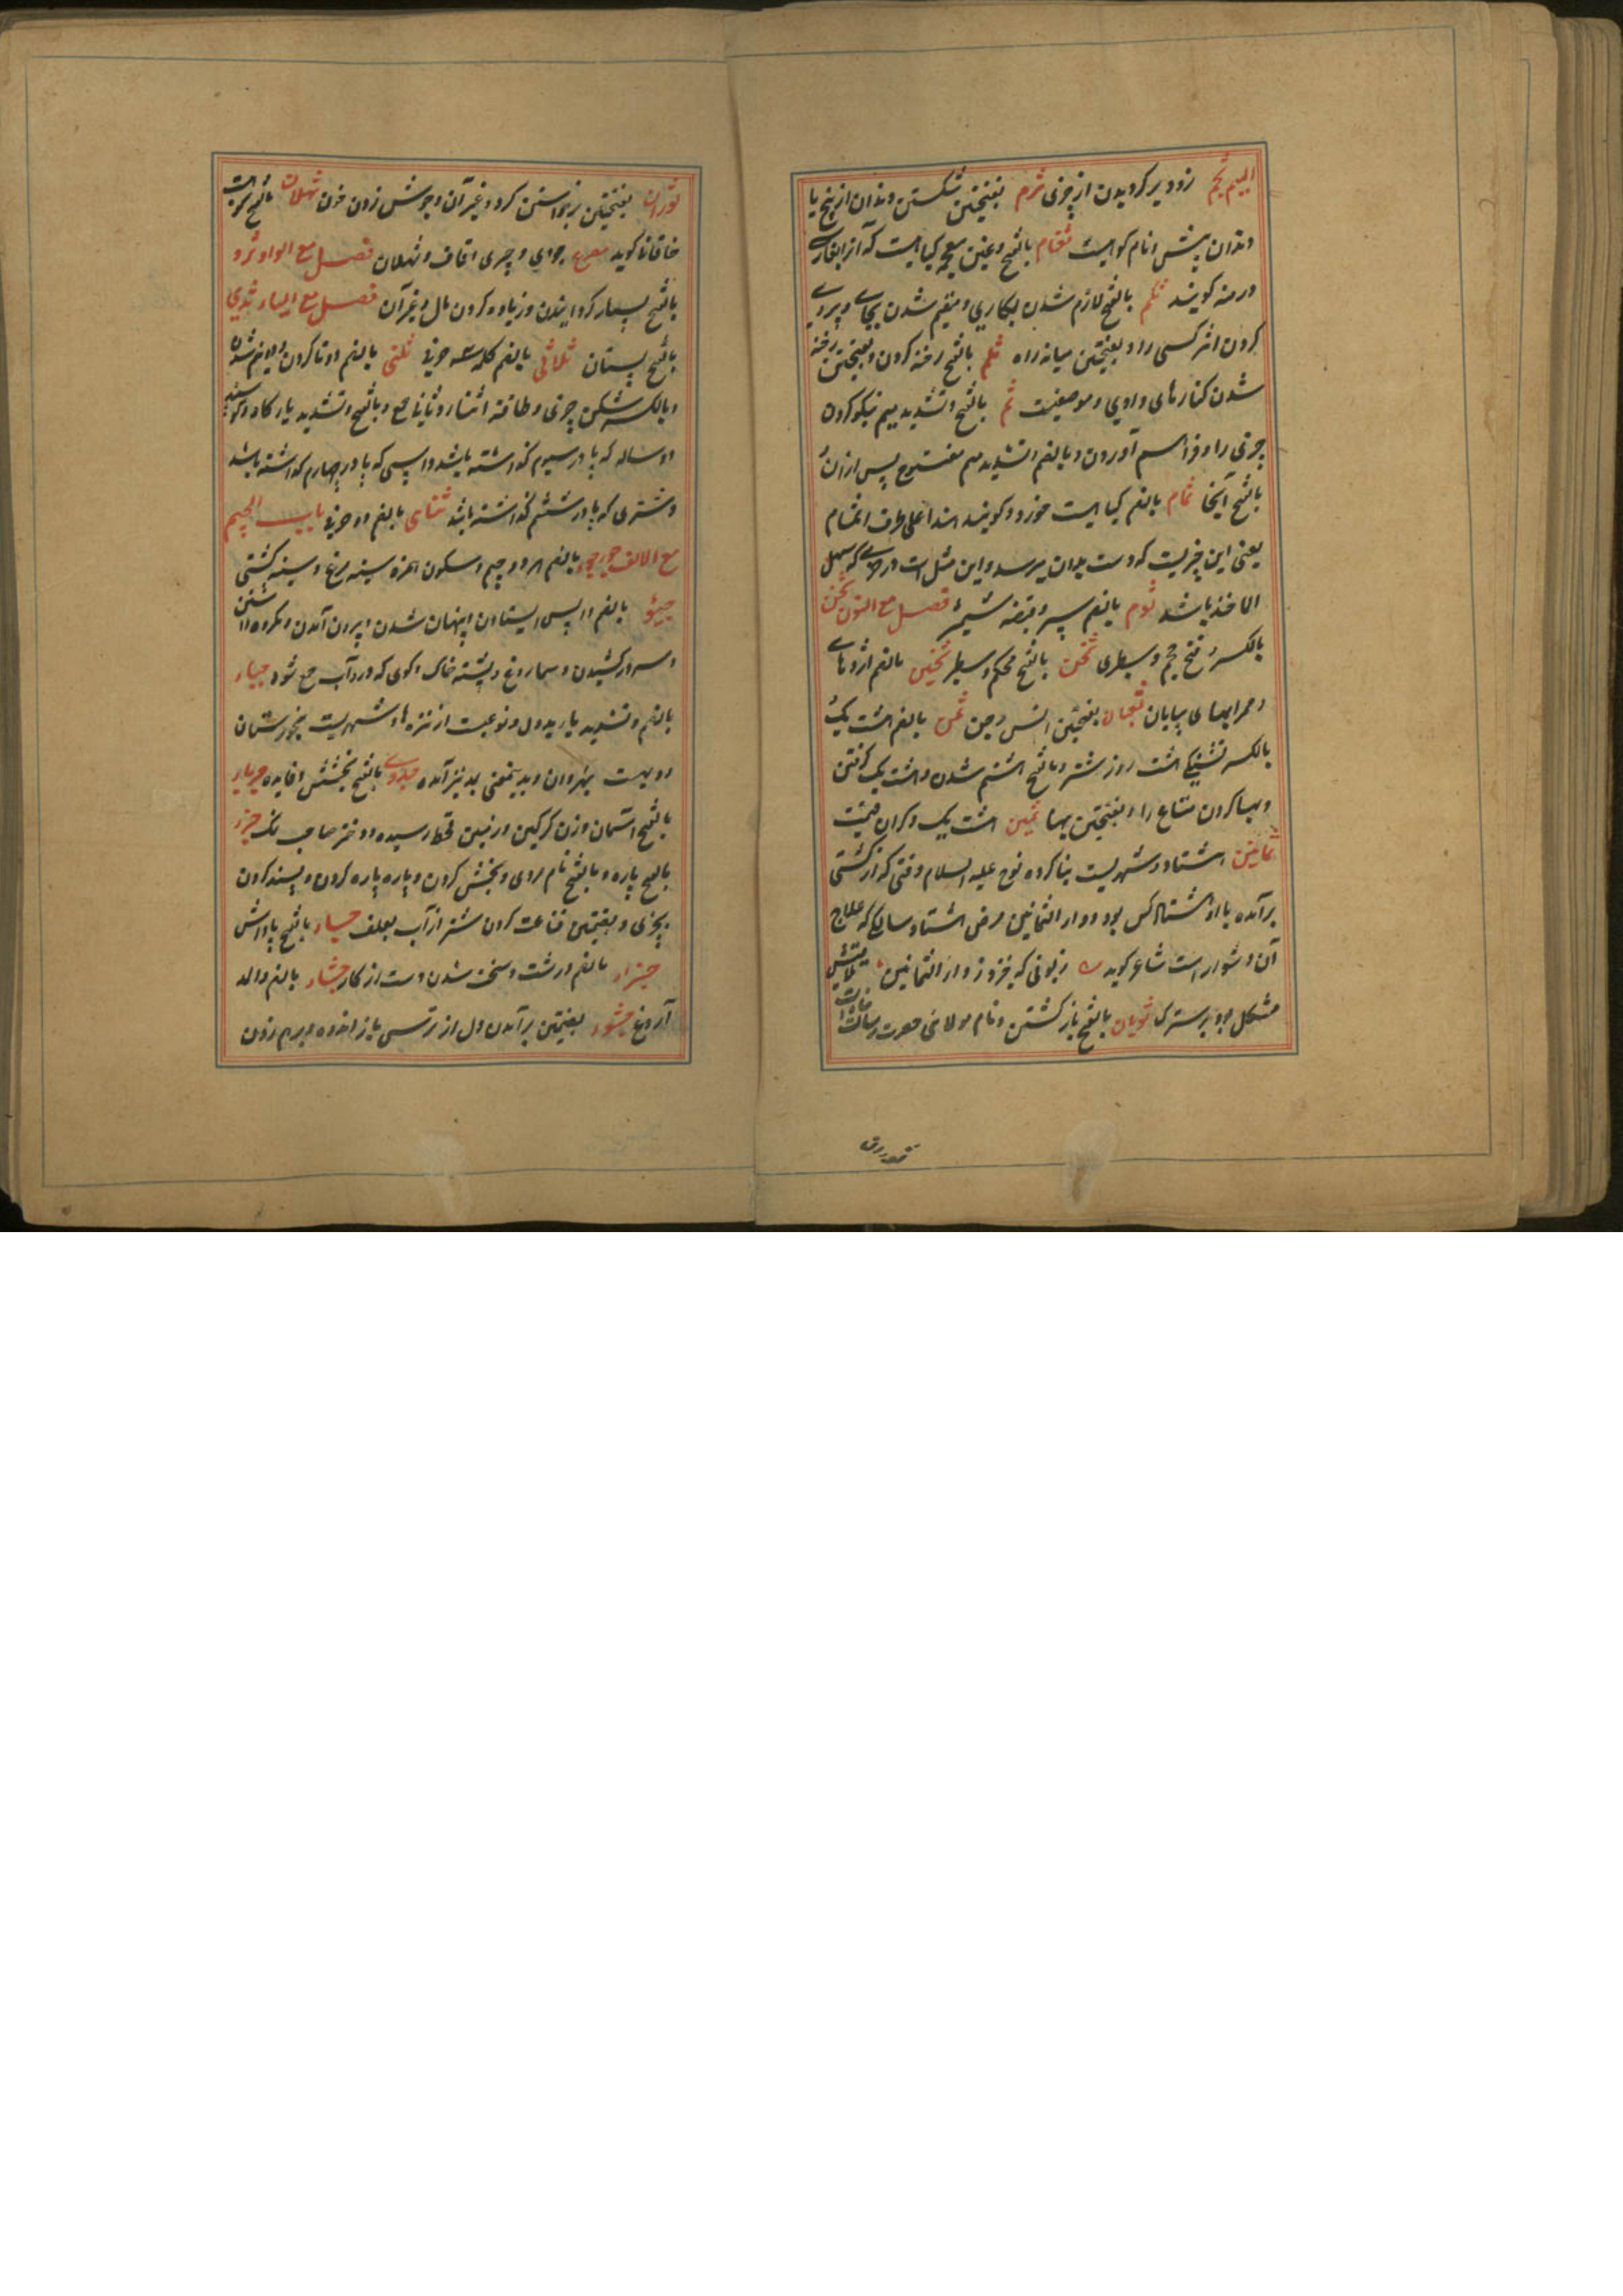 المیم ثجم زود پر کردیدن از چیزی ثرم بفتحتین شکستن دندان از بیخ یا
دندان پیش و نام کوهیست ثغام بالفتح وغین معجمه کیاهیست که آنرا بفارسی
درمنه کویند ثکم بالفتح لازم شدن بکاری ومقیم شدن بجای و پیروی
کردن اثر کسی را و بفتحتین میانه راه ثلم بالفتح رخنه کردن و بفتحتین رخنه
شدن کنارهای وادی و موضعیست ثم بالفتح و تشدید میم نیکو کردن
چیزی را و فراهم آوردن و بالضم و تشدید میم مفتوح پس ازان و
بالفتح آنجا ثمام بالضم کیاهیست خورد و کویند هذا علی طرف الثمام
یعنی این چیزیست که دست بدان میرسد و این مثل است در که سهل
الماخذ باشد ثوم بالضم سیر و قبضه شمشیر فصل مع النون ثخن
بالکسر و فتح حجم و سطبری ثخن بالفتح محکم و سطبر ثخین بالضم اژدهای
بیابان ثقلان بفتحتین انس و جن ثمن بالضم هشت یک
بالکسر تشنکی هشت روز شتر و بالفتح هشتم شدن و هشت یک کرفتن
و بها کردن متاع را و بفتحتین بها ثمین هشت یک و کران قیمت
ثمانین هشتاد و شهریست بنا کرده نوح علیه السلام وقتی که از کشتی
برآمده با او هشتاد کس بود و دوار الثمانین مرض هشتاد سالکی که علاج
آن دشوار است شاعر کوید زبونی که خیزد ز دار الثمانین
مشکل بود بر سترک ثوبان بالفتح باز کشتن و نام مولای حضرت رسالت
ثوران بفتحتین برخواستن کرد و غیر آن و جوشش زدن خون ثهلان بالفتح کوهیست
خاقانی کوید مصرع جودی و چری و قاف و ثهلان فصل مع الواو ثرو
بالفتح بسیار کردانیدن و زیاده کردن مال و غیر آن فصل مع الیاء ثدی
بالفتح پستان ثلاثی بالضم کلمه سه حرفی ثنی بالضم دوتا کردن و دویم شدن
و بالکسر شکن چیزی و طاقه اثناء و ثانی جمع و بالفتح و تشدید یا کاو و کوسفند
دو ساله که پا در سیوم کذاشته باشد و اسپی که پا در چهارم کذاشته باشد
و شتری که پا در ششم کذاشته باشد ثنای بالضم دو حرفی باب الجیم
مع الالف جوجوء بالضم هر دو جیم و سکون همزه سینه مرغ و سینه کشتی
بالضم واپس ایستادن و پنهان شدن و بیرون آمدن و مکروه داشتن
و سر در کشیدن و سماروغ و پشته خاک و کوی که در و آب جمع شود جباء
بالضم و تشدید با بددل و نوعیست از نیزه ها و شهریست بخوزستان
و دهیست بنهروان و بدینمعنی بد نیز آمده جدوی بالفتح بخشش و فایده جرباء
بالفتح آسمان و زن کرکین و زمین قحط رسیده و دختر صاحب نمک جزء
بالضم پاره و بالفتح نام مردی و بخش کردن و پاره پاره کردن و بسنده کردن
بچیزی و بضمتین قناعت کردن شتر از آب بعلف جزاء بالفتح پاداش
جساء بالضم درشت و سخت شدن دست از کار جشاء بالضم و المد
آروغ جشوء بضمتین برآمدن دل از ترس یا از اندوه و برهم زدن